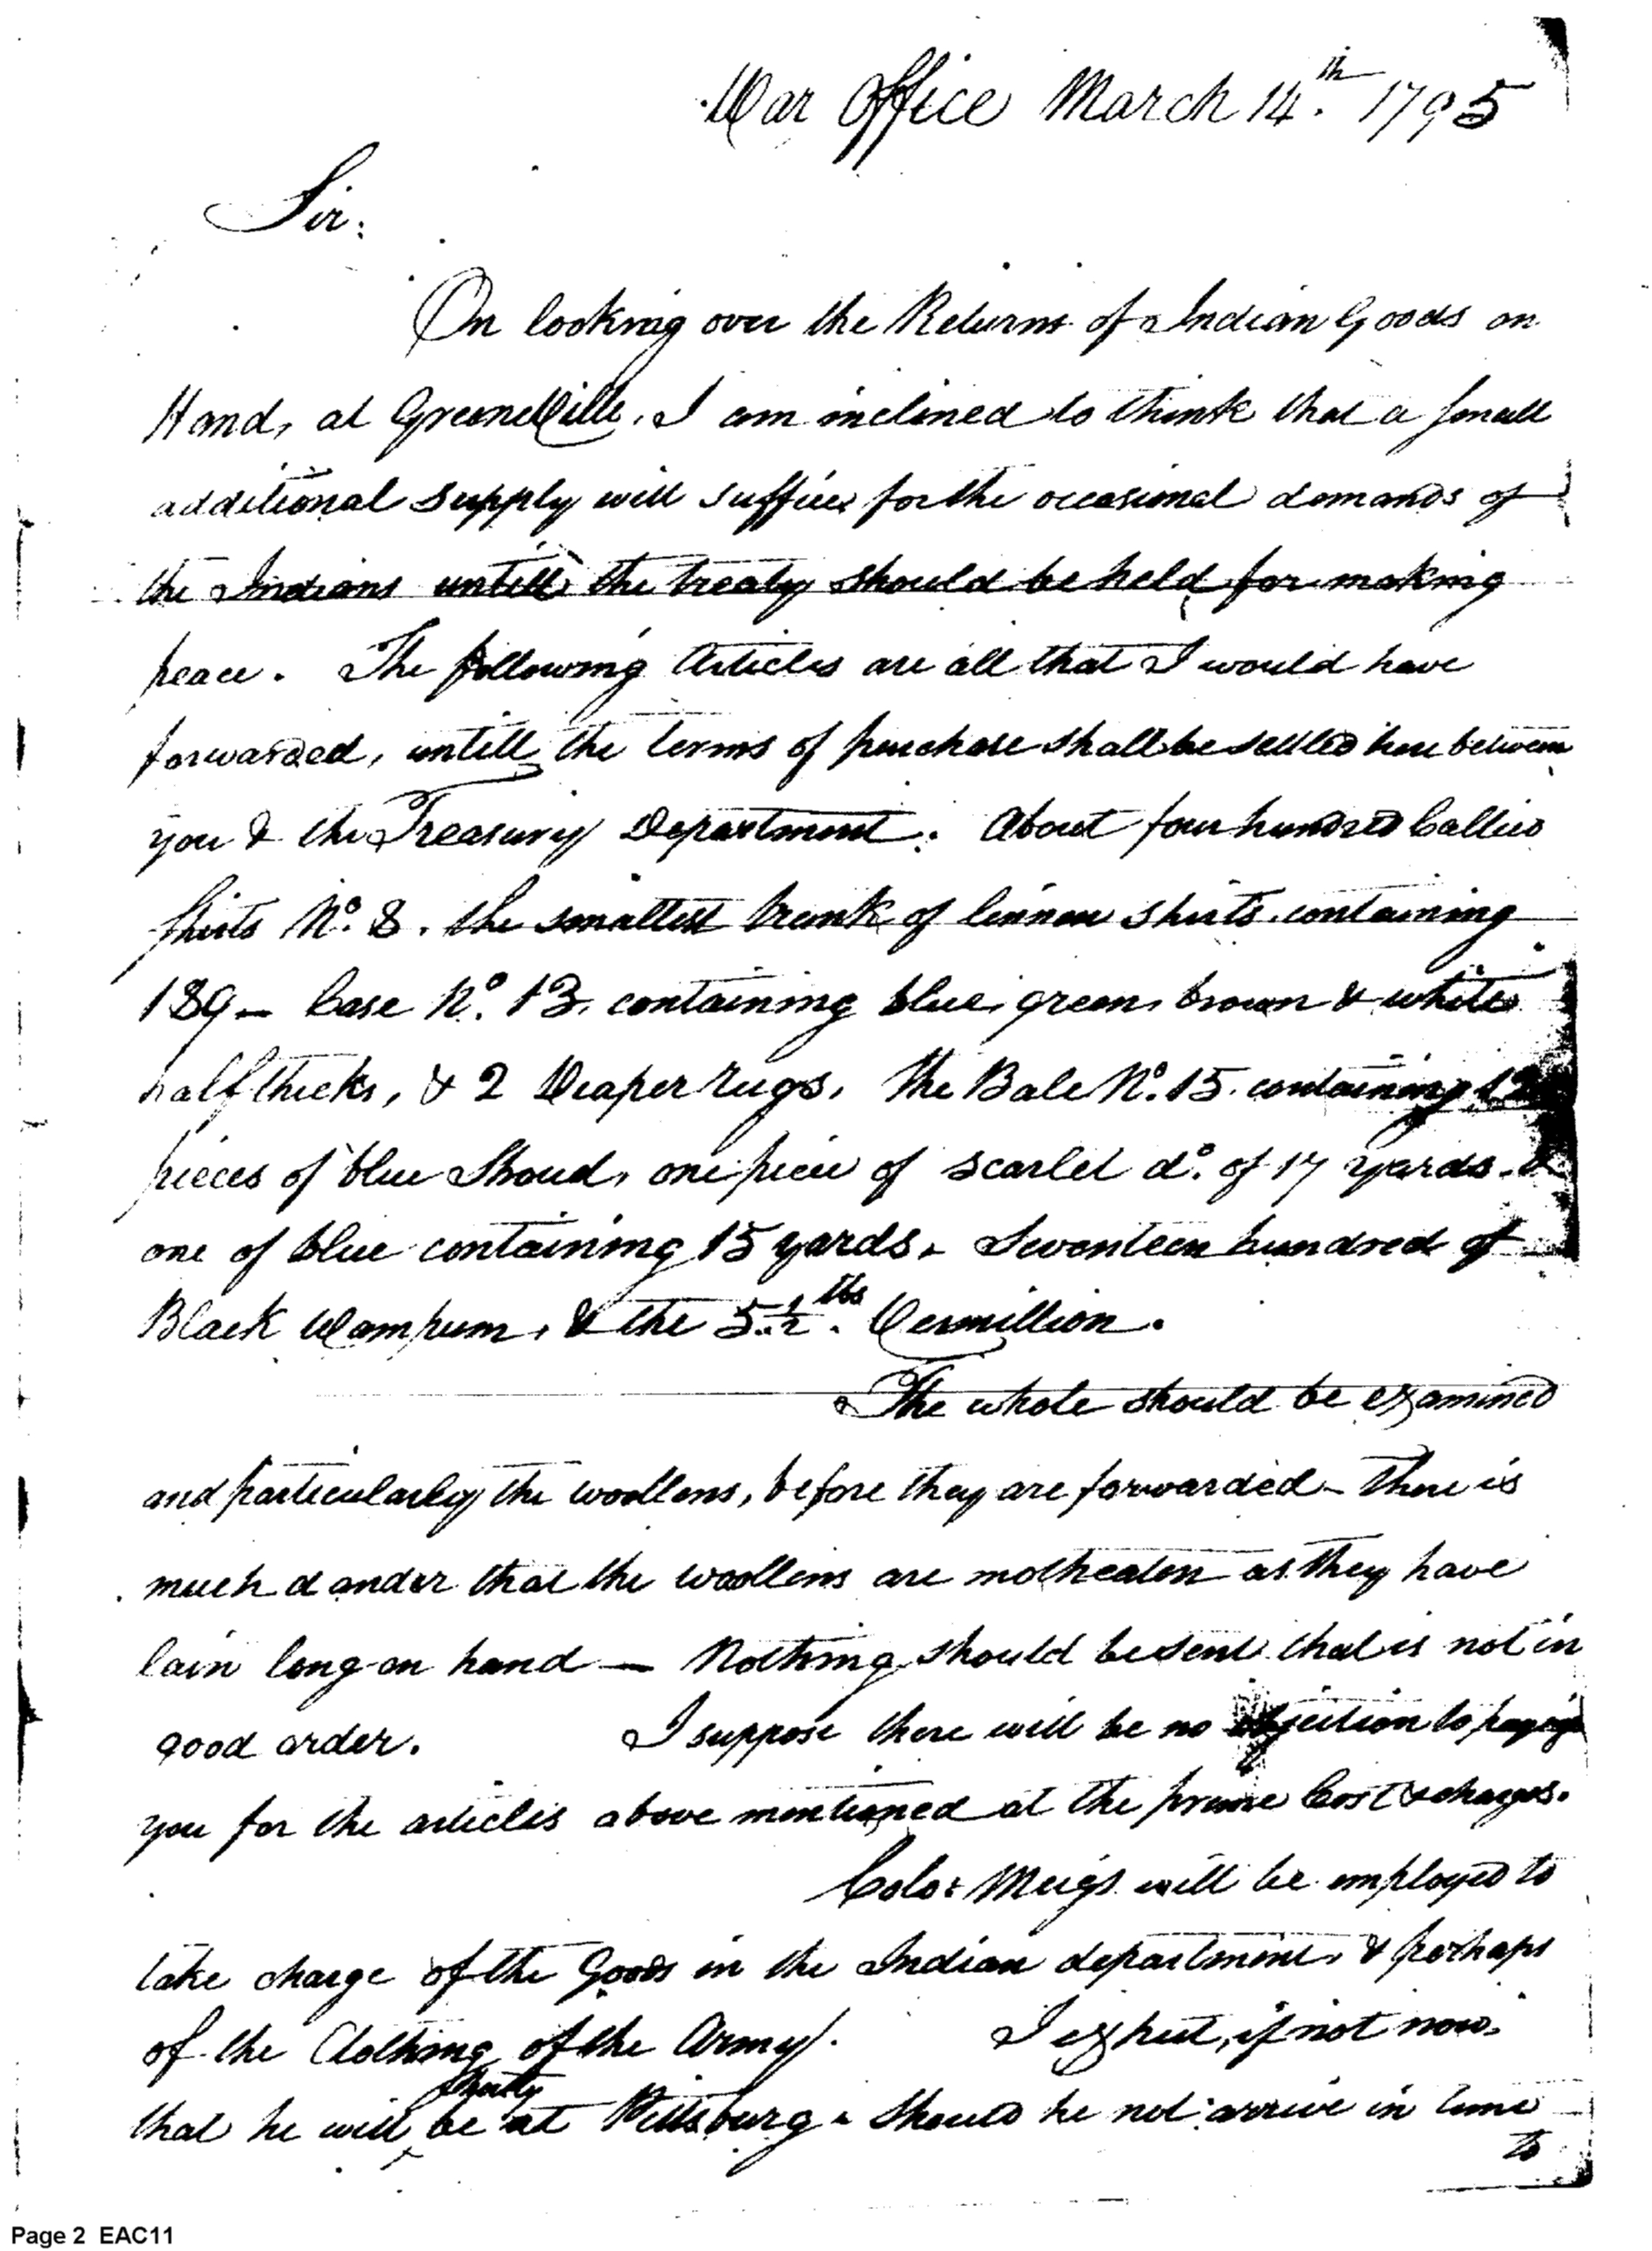 War Office March 14th. 1795
Sir:
On looking over the Returns of Indian Goods on
Hand, at GreeneVille, I am inclined to think that a small
additional supply will suffice for the occasional demands of
the Indians untill the treaty should be held for making
peace. The following Articles are all that I would have
forwarded, untill the terms of purchase shall be settled here between
you & the Treasury Department. About four hundred Callico
shirts No. 8. the smallest trunk of linnen shirts containing
189 – Case No. 13. containing blue, green, brown & white
halfthicks, & 2 Deaper rugs, The Bale No. 15. containing 12
pieces of blue Stroud, one piece of scarlet do. of 17 yards &
one of blue containing 15 yards, Seventeen hundred of
Black Wampum, & the 5.½ lbs. Vermillion.
The whole should be examined
and particularly the woollens, before they are forwarded – There is
much dander that the woollens are motheaten as they have
lain long on hand — Nothing should be sent that is not in
good order. I suppose there will be no objection to paying
you for the articles above mentioned at the prime Cost & charges.
Colo: Meigs will be employed to
take charge of the Goods in the Indian department, & perhaps
of the Clothing of the Army. I expect, if not now,
shortly
that he will be at Pittsburg. Should he not arrive in time
to
Page 2 EAC11